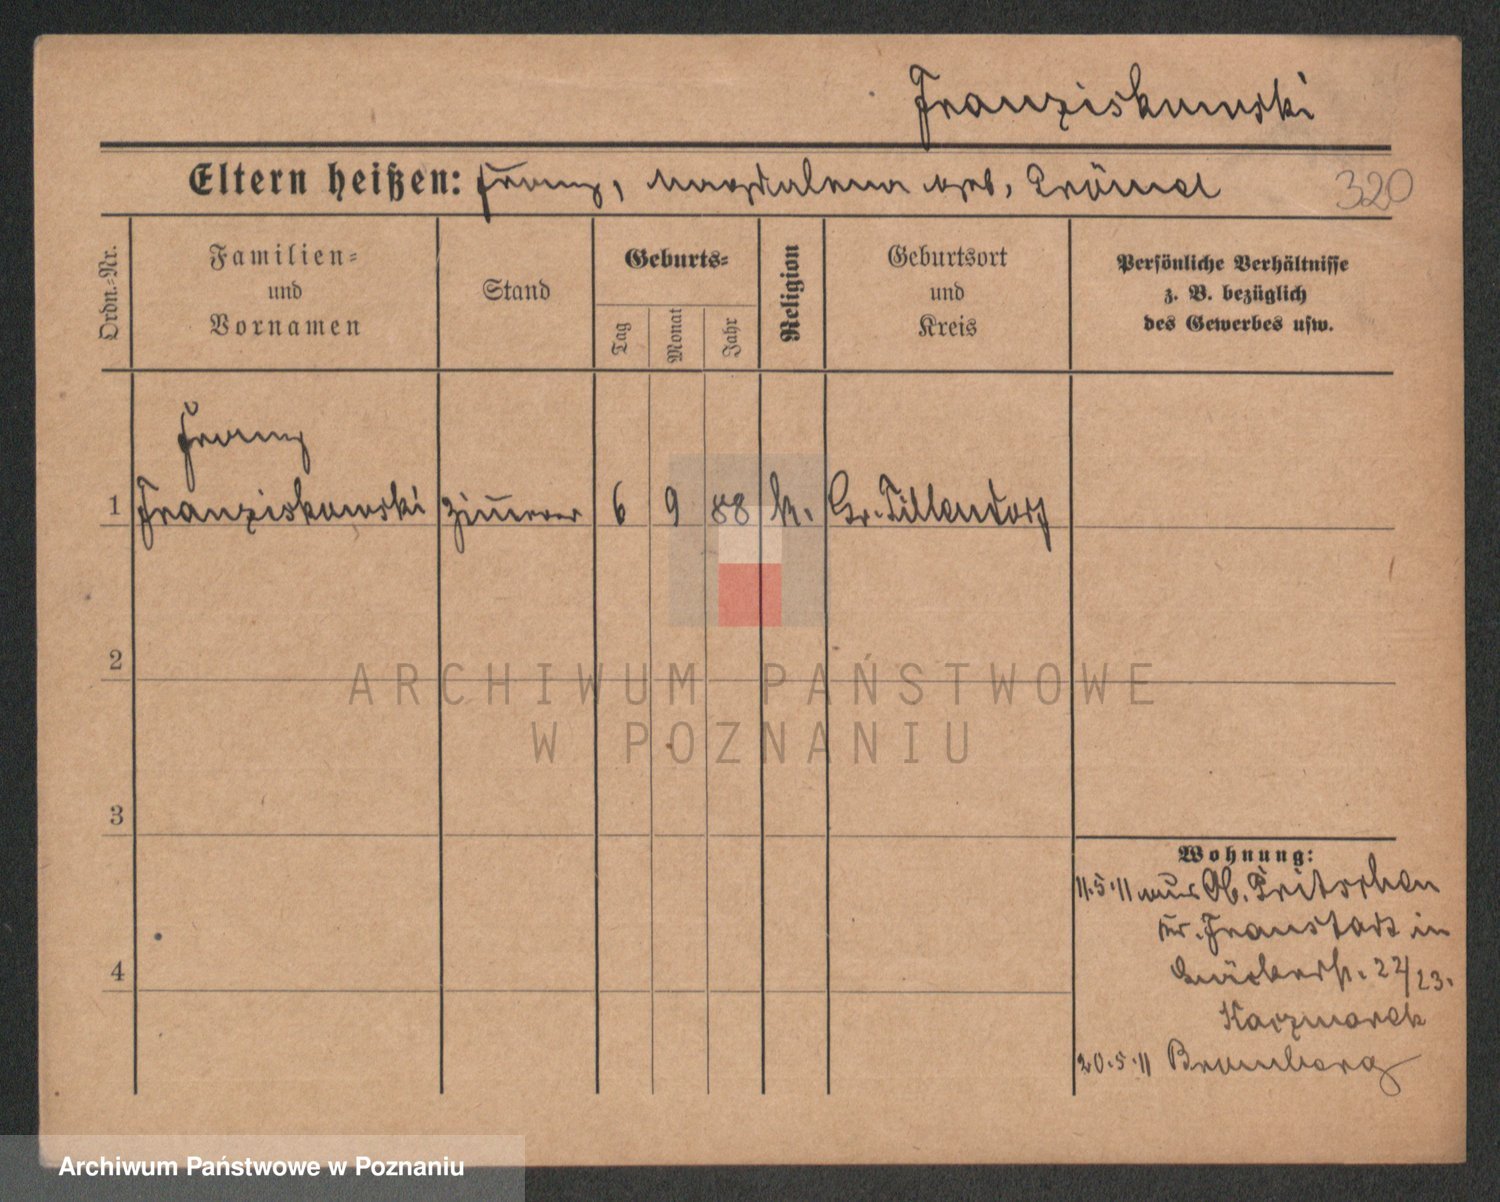 Franziskowski
Eltern heißen: Franz, Magdalena geb.
320
Ordn.-Nr.
Familien-
und
Vornamen
Stand
Geburts-
Tag
Monat
Jahr
Religion
Geburtsort
und
Kreis
Persönliche Verhältnisse
z. B. bezüglich
des Gewerbes usw.
Franz
1 Franziskowski 6 9 88 k. Gr. Tillendorf
2
3
4
Wohnung:
11.5.11 aus Ob. Pritschen
Kr. Fraustadt in
22/23.
Kaczmarek
20.5.11 Bromberg
ARCHIWUM PAŃSTWOWE
W POZNANIU
Archiwum Państwowe w Poznaniu